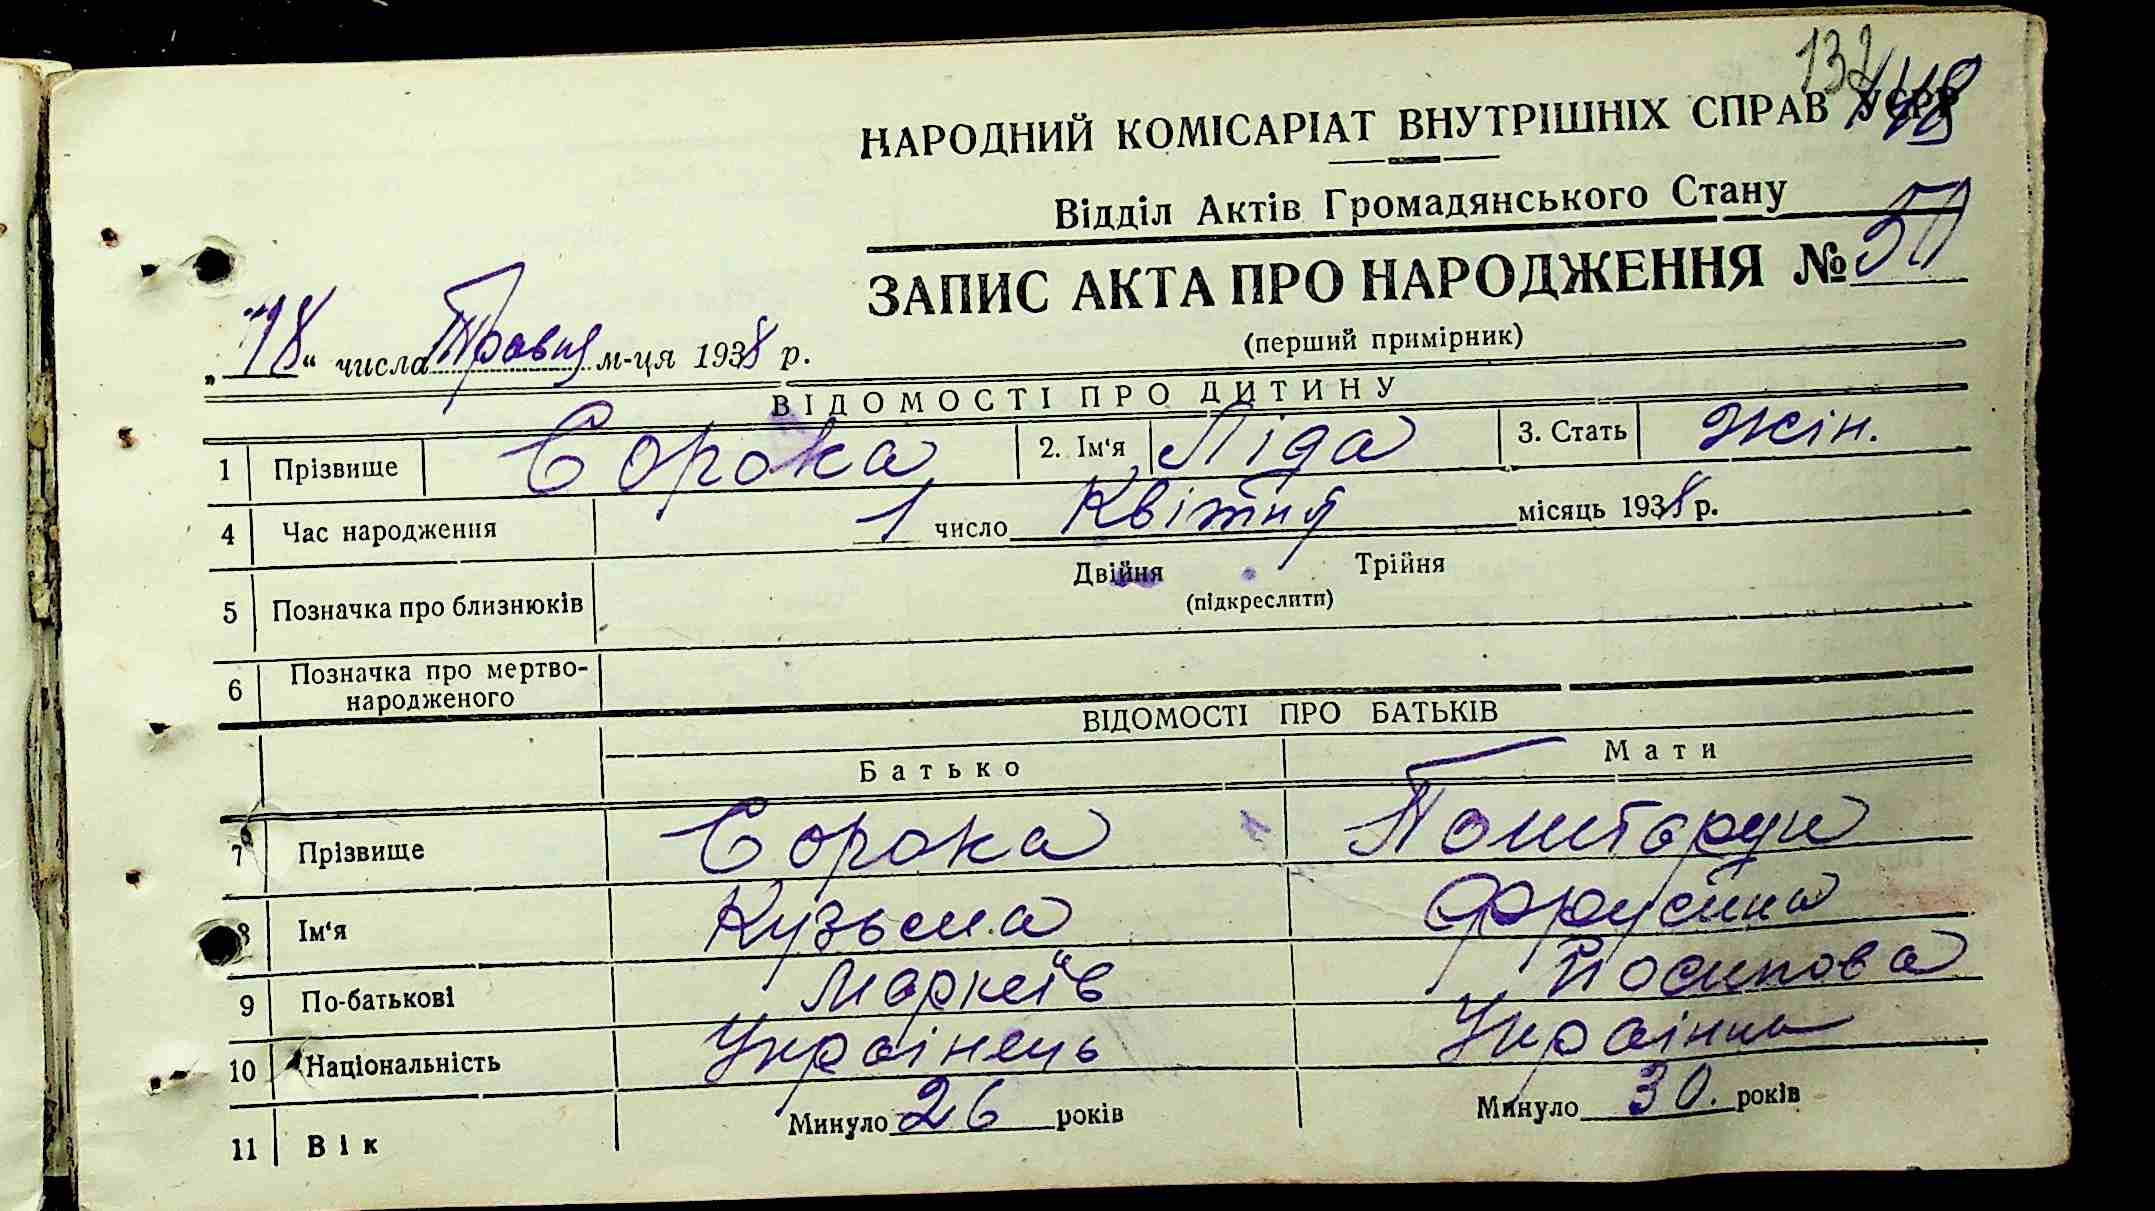 132
148
НАРОДНИЙ КОМІСАРІАТ ВНУТРІШНІХ СПРАВ УСРР
Відділ Актів Громадянського Стану
ЗАПИС АКТА ПРО НАРОДЖЕННЯ № 50
(перший примірник)
„18“ числа Травня м-ця 1938 р.
ВІДОМОСТІ ПРО ДИТИНУ
1 Прізвище Сорока 2. Ім'я Ліда 3. Стать жін.
4 Час народження 1 число Квітня місяць 1938 р.
5 Позначка про близнюків Двійня Трійня
(підкреслити)
6 Позначка про мертво-
народженого
ВІДОМОСТІ ПРО БАТЬКІВ
Батько Мати
7 Прізвище Сорока
8 Ім'я Кузьма Фрусина
9 По-батькові Маркеїв Йосипова
10 Національність Українець Українка
11 Вік Минуло 26 років Минуло 30. років